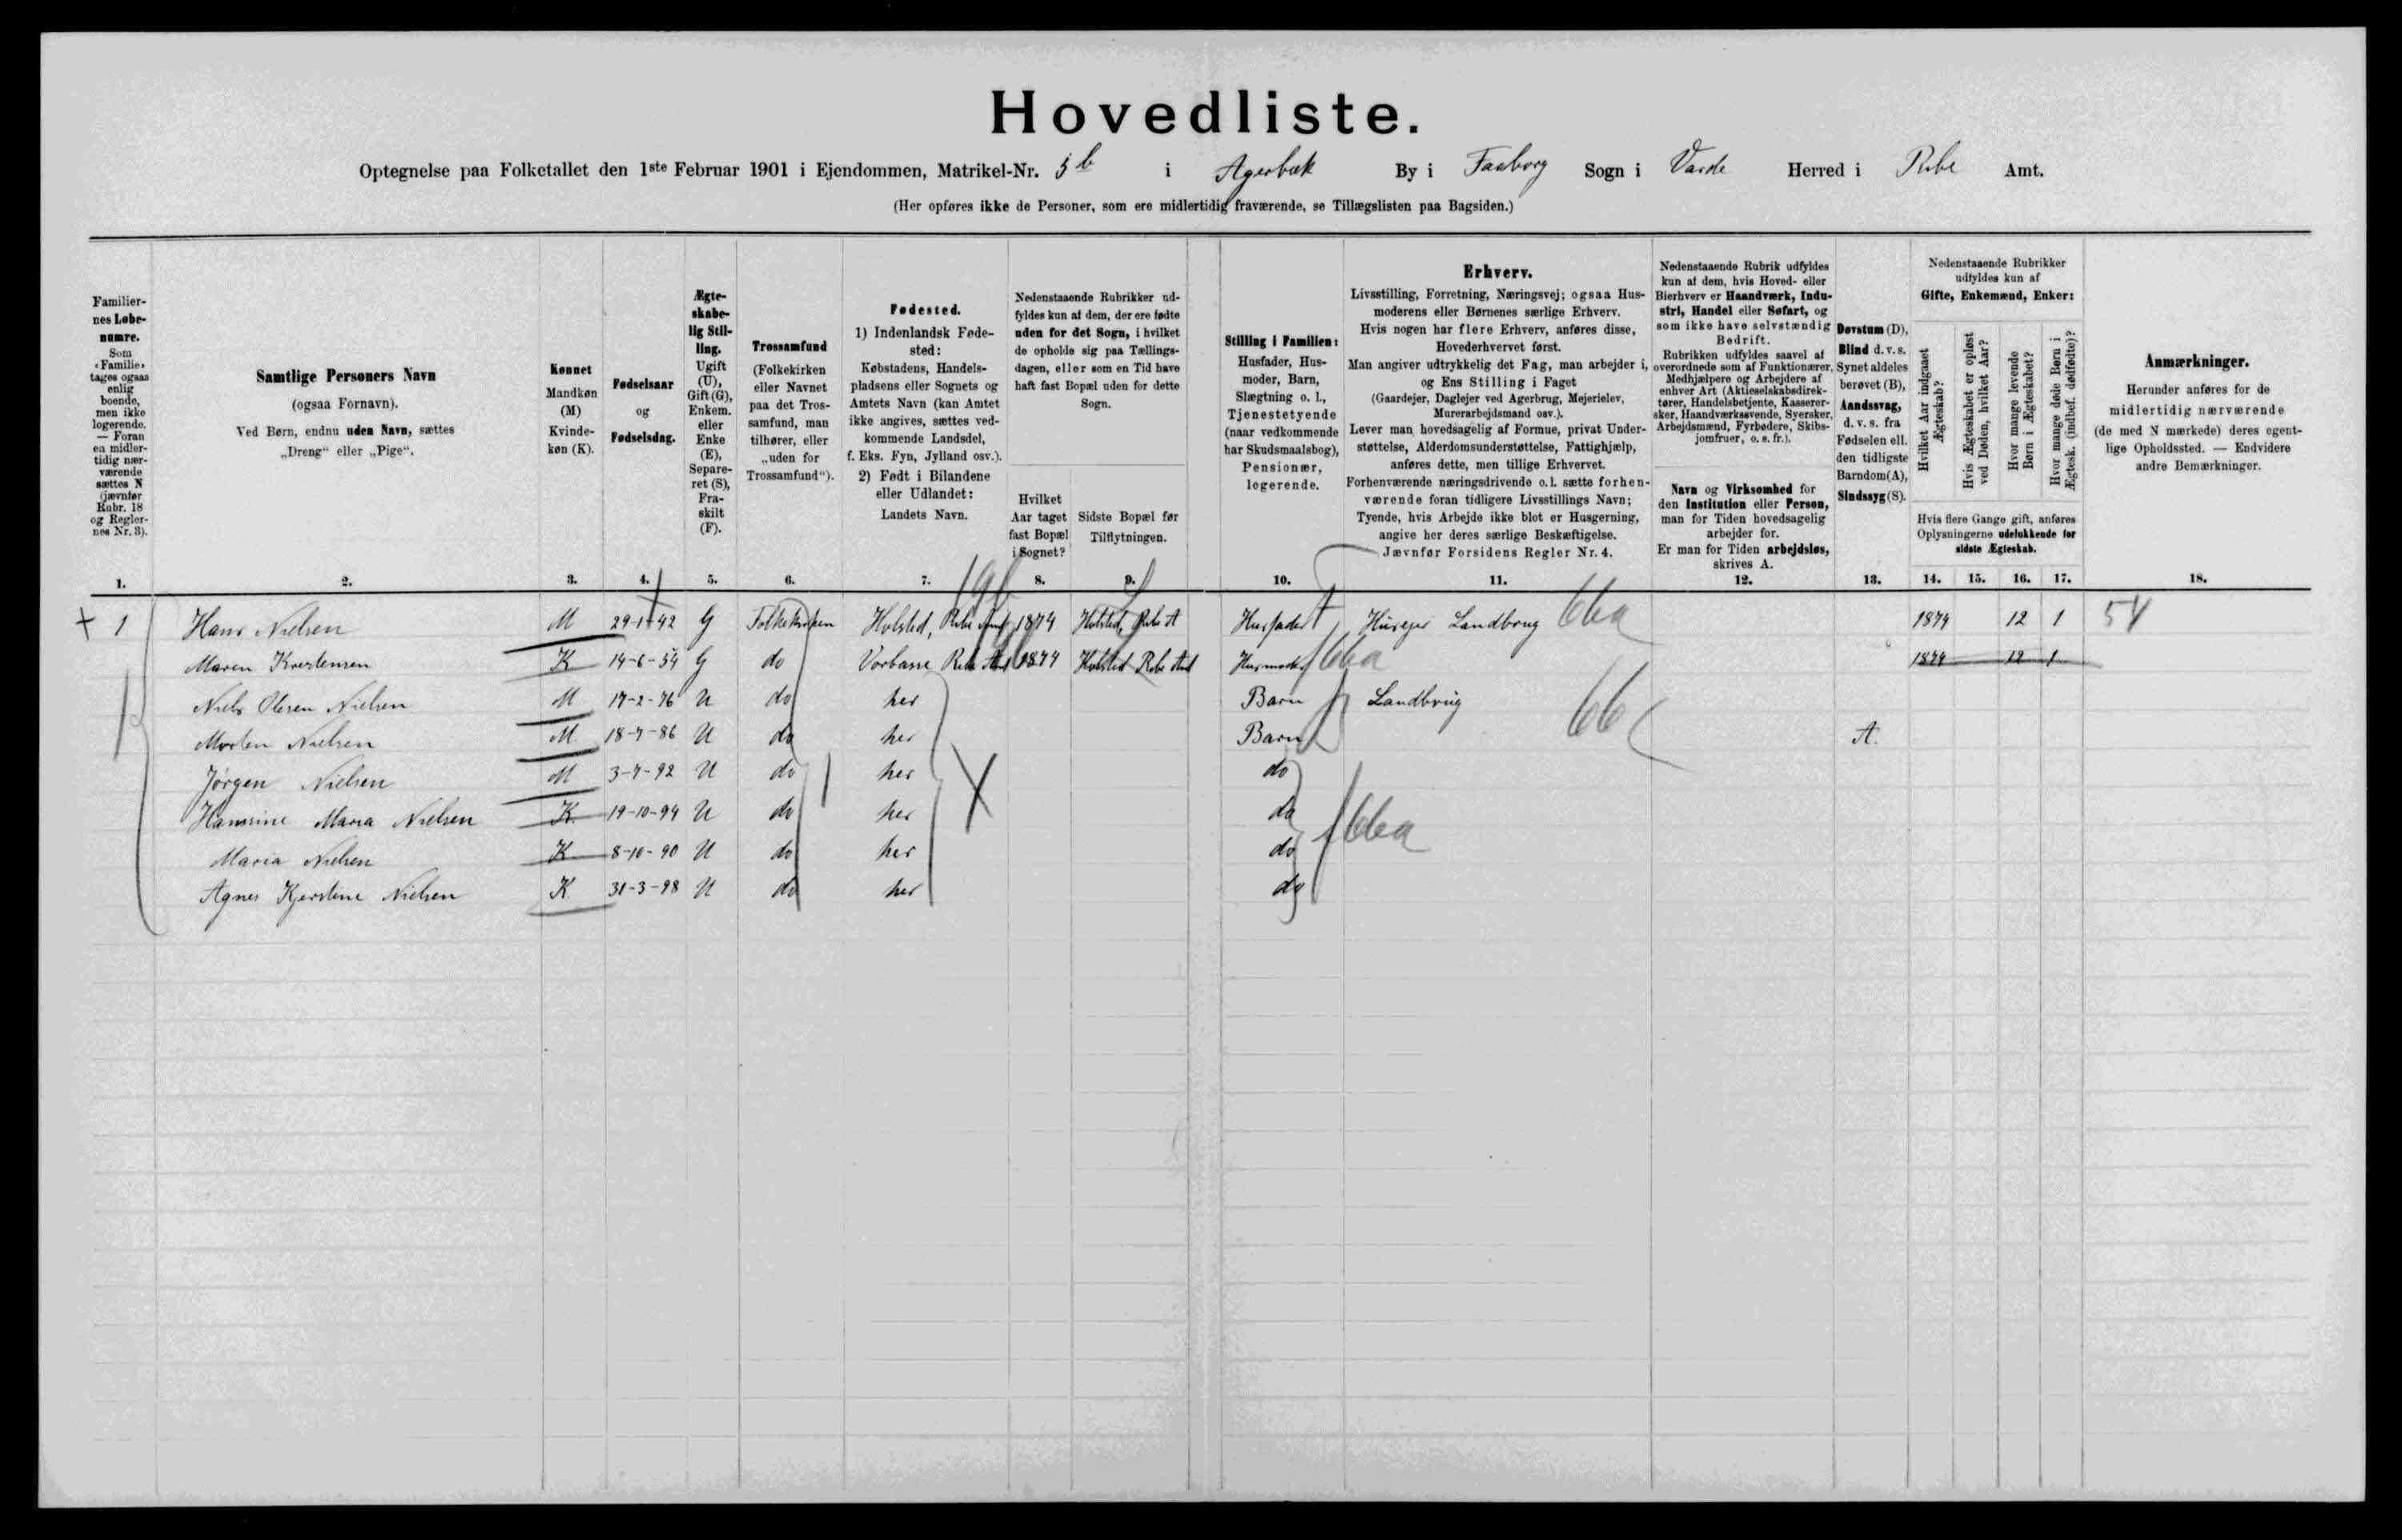 Hovedliste.
Optegnelse paa Folketallet den 1ste Februar 1901 i Ejendommen, Matrikel-Nr. 5 b i Agerbæk By i Faaborg Sogn i Varde Herred i Ribe Amt.
(Her opføres ikke de Personer, som ere midlertidig fraværende, se Tillægslisten paa Bagsiden.)
Familiernes Løbenumre.
Som «Familie» tages ogsaa enlig boende, men ikke logerende. — Foran en midlertidig nærværende sættes N (jævnfør Rubr. 18 og Reglernes Nr. 3).
Samtlige Personers Navn
(ogsaa Fornavn).
Ved Børn, endnu uden Navn, sættes
„Dreng“ eller „Pige“.
Kønnet
Mandkøn (M)
Kvindekøn (K).
Fødselsaar
og
Fødselsdag.
Ægteskabelig Stilling.
Ugift (U), Gift (G), Enkem. eller Enke (E), Separeret (S), Fraskilt (F).
Trossamfund
(Folkekirken eller Navnet paa det Trossamfund, man tilhører, eller „uden for Trossamfund“).
Fødested.
1) Indenlandsk Fødested:
Købstadens, Handelspladsens eller Sognets og Amtets Navn (kan Amtet ikke angives, sættes vedkommende Landsdel, f. Eks. Fyn, Jylland osv.).
2) Født i Bilandene eller Udlandet:
Landets Navn.
Nedenstaaende Rubrikker udfyldes kun af dem, der ere fødte uden for det Sogn, i hvilket de opholde sig paa Tællingsdagen, eller som en Tid have haft fast Bopæl uden for dette Sogn.
Hvilket Aar taget fast Bopæl i Sognet?
Sidste Bopæl før Tilflytningen.
Stilling i Familien:
Husfader, Husmoder, Barn, Slægtning o. l., Tjenestetyende (naar vedkommende har Skudsmaalsbog), Pensionær, logerende.
Erhverv.
Livsstilling, Forretning, Næringsvej; ogsaa Husmoderens eller Børnenes særlige Erhverv.
Hvis nogen har flere Erhverv, anføres disse, Hovederhvervet først.
Man angiver udtrykkelig det Fag, man arbejder i, og Ens Stilling i Faget
(Gaardejer, Daglejer ved Agerbrug, Mejerielev, Murerarbejdsmand osv.).
Lever man hovedsagelig af Formue, privat Understøttelse, Alderdomsunderstøttelse, Fattighjælp, anføres dette, men tillige Erhvervet.
Forhenværende næringsdrivende o. l. sætte forhenværende foran tidligere Livsstillings Navn;
Tyende, hvis Arbejde ikke blot er Husgerning, angive her deres særlige Beskæftigelse.
Jævnfør Forsidens Regler Nr. 4.
Nedenstaaende Rubrik udfyldes kun af dem, hvis Hoved- eller Bierhverv er Haandværk, Industri, Handel eller Søfart, og som ikke have selvstændig Bedrift.
Rubrikken udfyldes saavel af overordnede som af Funktionærer, Medhjælpere og Arbejdere af enhver Art (Aktieselskabsdirektører, Handelsbetjente, Kasserersker, Haandværkssvende, Syersker, Arbejdsmænd, Fyrbødere, Skibsjomfruer, o. s. fr.).
Navn og Virksomhed for den Institution eller Person, man for Tiden hovedsagelig arbejder for.
Er man for Tiden arbejdsløs, skrives A.
Døvstum (D), Blind d. v. s. Synet aldeles berøvet (B), Aandssvag, d. v. s. fra Fødselen ell. den tidligste Barndom (A), Sindssyg (S).
Nedenstaaende Rubrikker udfyldes kun af
Gifte, Enkemænd, Enker:
Hvilket Aar indgaaet Ægteskab?
Hvis Ægteskabet er opløst ved Døden, hvilket Aar?
Hvor mange levende Børn i Ægteskabet?
Hvor mange døde Børn i Ægtesk. (indbef. dødfødte)?
Hvis flere Gange gift, anføres Oplysningerne udelukkende for sidste Ægteskab.
Anmærkninger.
Herunder anføres for de midlertidig nærværende (de med N mærkede) deres egentlige Opholdssted. — Endvidere andre Bemærkninger.
1. 2. 3. 4. 5. 6. 7. 8. 9. 10. 11. 12. 13. 14. 15. 16. 17. 18.
1 Hans Nielsen M 29-1-42 G Folkekirken Holsted, Ribe Amt 1874 Holsted, Ribe A Husfader Husejer Landbrug 66a 1874 12 1 54
Maren K 14-6-54 G do Vorbasse Ribe Amt 1874 Holsted Ribe Amt Husmoder 66a 1874 12 1
Niels Olesen Nielsen M 17-2-76 U do her Barn Landbrug 66c
Morten Nielsen M 18-7-86 U do her Barn A.
Jørgen Nielsen M 3-7-92 U do her do
Hansine Maria Nielsen K 19-10-94 U do her do 66a
Maria Nielsen K 8-10-90 U do her do
Agnes Kjerstine Nielsen K 31-3-98 U do her do